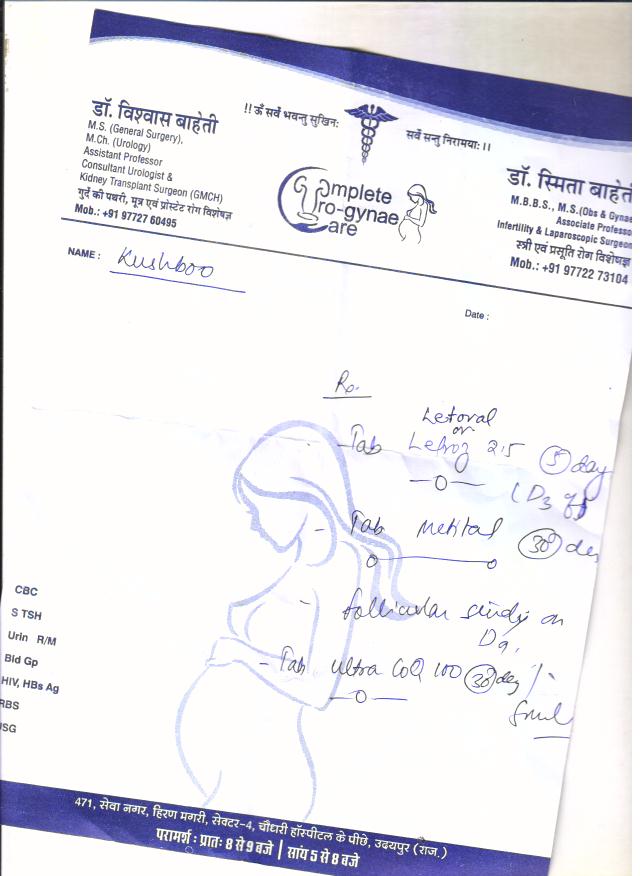 !! ॐ सर्वे भवन्तु सुखिनः
सर्वे सन्तु निरामयाः ।।
डॉ. विश्वास बाहेती
M.S. (General Surgery),
M.Ch. (Urology)
Assistant Professor
Consultant Urologist &
Kidney Transplant Surgeon (GMCH)
गुर्दे की पथरी, मूत्र एवं प्रोस्टेट रोग विशेषज्ञ
Mob.: +91 97727 60495
Complete
Uro-gynae
Care
डॉ. स्मिता बाहेती
M.B.B.S., M.S.(Obs & Gynae
Associate Professo
Infertility & Laparoscopic Surgeon
स्त्री एवं प्रसूति रोग विशेषज्ञ
Mob.: +91 97722 73104
NAME : Kushboo
Date :
Rx.
Letoral
or
Tab Letroz 2.5 5 day
(D3
- Tab 30
- follicular study on
D9,
- Tab Ultra CoQ 100 30 day
CBC
S TSH
Urin R/M
Bld Gp
HIV, HBs Ag
RBS
SG
471, सेवा नगर, हिरण मगरी, सेक्टर-4, चौधरी हॉस्पीटल के पीछे, उदयपुर (राज.)
परामर्श : प्रातः 8 से 9 बजे | सांय 5 से 8 बजे